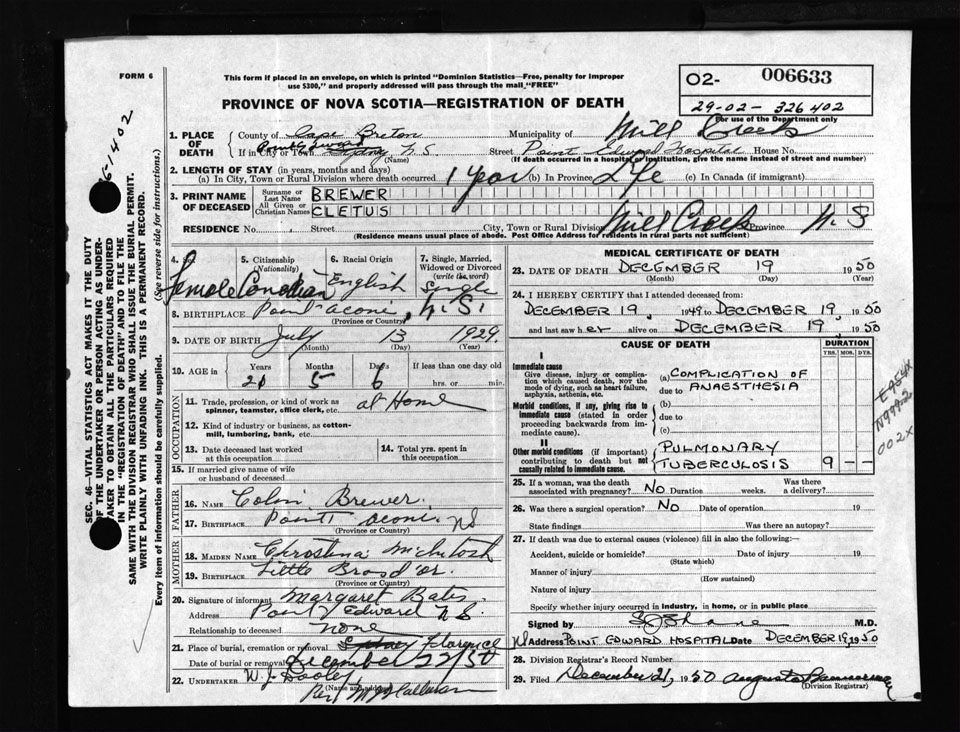 FORM 6
This form if placed in an envelope, on which is printed "Dominion Statistics—Free, penalty for improper
use $300," and properly addressed will pass through the mail "FREE"
PROVINCE OF NOVA SCOTIA—REGISTRATION OF DEATH
02- 006633
29-02- 326402
For use of the Department only
6-1402
SEC. 46—VITAL STATISTICS ACT MAKES IT THE DUTY
OF THE UNDERTAKER OR PERSON ACTING AS UNDER-
TAKER TO OBTAIN ALL THE PARTICULARS REQUIRED
IN THE "REGISTRATION OF DEATH" AND TO FILE THE
SAME WITH THE DIVISION REGISTRAR WHO SHALL ISSUE THE BURIAL PERMIT.
WRITE PLAINLY WITH UNFADING INK. THIS IS A PERMANENT RECORD.
Every item of information should be carefully supplied. (See reverse side for instructions.)
1. PLACE OF DEATH County of Cape Breton Municipality of Mill Creek
If in City or Town Point Edward Sydney N S (Name) Street Point Edward Hospital House No.
(If death occurred in a hospital or institution, give the name instead of street and number)
2. LENGTH OF STAY (in years, months and days)
(a) In City, Town or Rural Division where death occurred 1 year (b) In Province Life (c) In Canada (if immigrant)
3. PRINT NAME OF DECEASED Surname or Last Name BREWER
All Given or Christian Names CLETUS
RESIDENCE No. Street City, Town or Rural Division Mill Creek Province N. S
(Residence means usual place of abode. Post Office Address for residents in rural parts not sufficient)
4. Female
5. Citizenship (Nationality) Canadian
6. Racial Origin English
7. Single, Married, Widowed or Divorced (write the word) Single
8. BIRTHPLACE Point Aconi, N. S. (Province or Country)
9. DATE OF BIRTH July 13 1929.
(Month) (Day) (Year)
10. AGE in Years Months Days If less than one day old
21 5 6 hrs. or min.
OCCUPATION
11. Trade, profession, or kind of work as
spinner, teamster, office clerk, etc. at Home
12. Kind of industry or business, as cotton-
mill, lumbering, bank, etc.
13. Date deceased last worked at this occupation
14. Total yrs. spent in this occupation
15. If married give name of wife
or husband of deceased
FATHER
16. NAME Colin Brewer.
17. BIRTHPLACE Point Aconi. NS
(Province or Country)
MOTHER
18. MAIDEN NAME Christina McIntosh
19. BIRTHPLACE Little Bras d'or.
(Province or Country)
20. Signature of informant Margaret Bates
Address Point Edward N S.
Relationship to deceased none
21. Place of burial, cremation or removal Sydney Florence
Date of burial or removal December 22/50
22. UNDERTAKER W. J. Dooley
(Name and address)
Per
MEDICAL CERTIFICATE OF DEATH
23. DATE OF DEATH DECEMBER 19 1950
(Month) (Day) (Year)
24. I HEREBY CERTIFY that I attended deceased from:
DECEMBER 19, 1949 to DECEMBER 19, 1950
and last saw her alive on DECEMBER 19, 1950
CAUSE OF DEATH
DURATION
YRS. MOS. DYS.
I
Immediate cause
Give disease, injury or complica-
tion which caused death, NOT the
mode of dying, such as heart failure,
asphyxia, asthenia, etc.
(a) COMPLICATION OF
due to ANAESTHESIA
Morbid conditions, if any, giving rise to
immediate cause (stated in order
proceeding backwards from im-
mediate cause).
(b)
due to
(c)
II
Other morbid conditions (if important)
contributing to death but not
causally related to immediate cause.
PULMONARY
TUBERCULOSIS 9 - -
N999.2
002X
25. If a woman, was the death
associated with pregnancy? NO Duration weeks. Was there a delivery?
26. Was there surgical operation? NO Date of operation 19
State findings Was there an autopsy?
27. If death was due to external causes (violence) fill in also the following:—
Accident, suicide or homicide? Date of injury 19
(State which)
Manner of injury
(How sustained)
Nature of injury
Specify whether injury occurred in industry, in home, or in public place
Signed by M.D.
Address POINT EDWARD HOSPITAL Date DECEMBER 19, 1950
28. Division Registrar's Record Number
29. Filed December 21, 1950 Augusta Bannerman
(Division Registrar)